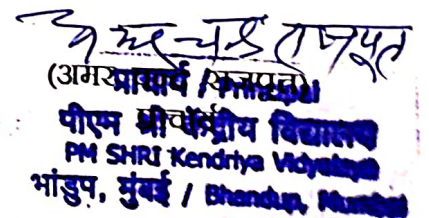 अमर चन्द राजपूत
(अमर राजपूत)
प्राचार्य / Principal
प्राचार्य
पीएम श्री केन्द्रीय विद्यालय
PM SHRI Kendriya Vidyalaya
भांडुप, मुंबई / Bhandup, Mumbai